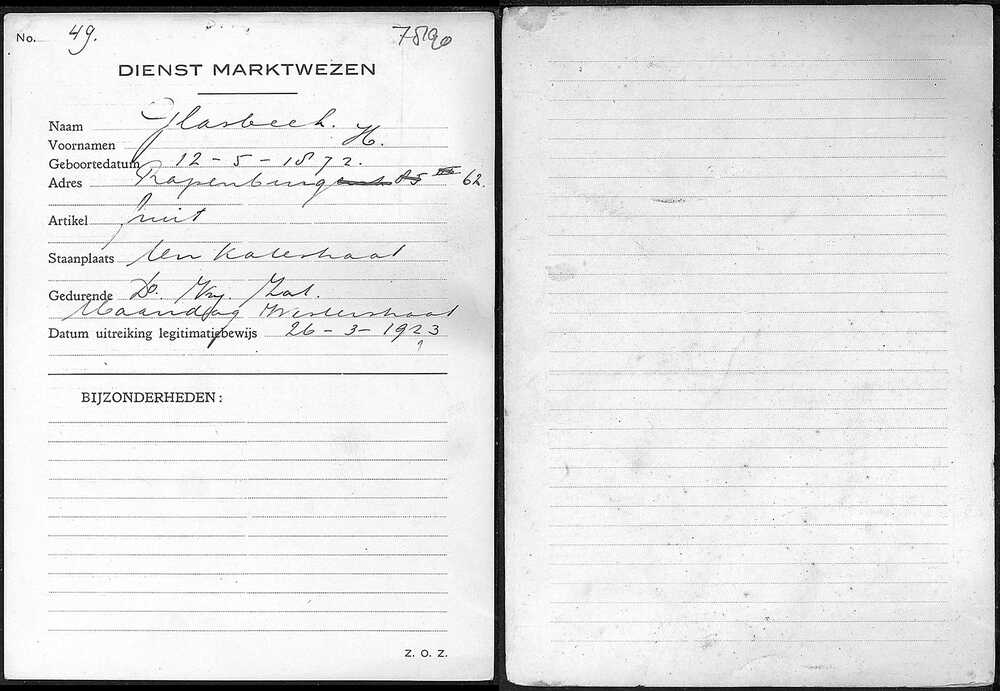 No. 49.
DIENST MARKTWEZEN
Naam Glasbeek.
Voornamen H.
Geboortedatum 12-5-1872.
Adres Rapenburg 62.
Artikel fruit
Staanplaats Ten Katestraat
Gedurende D. Vrij. Zat.
Maandag Westerstraat
Datum uitreiking legitimatiebewijs 26-3-1923
BIJZONDERHEDEN:
Z. O. Z.